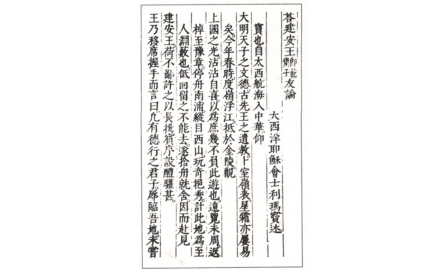 荅建安王友論
大西洋耶穌會士利瑪竇述
竇也自太西航海入中華仰
大明天子之文德古先王之遺教卜室嶺表星霜亦屢易
矣今年春時度嶺浮江抵於金陵觀
上國之光沾沾自喜以為庶幾不負此遊也遠覽未周返
棹至豫章停舟南浦縱目西山玩奇挹秀計此地為至
人淵藪也低回留之不能去遂捨舟就舍因而赴見
建安王荷不鄙許之以長揖賓序設醴驩甚
王乃移席握手而言曰凡有德行之君子辱臨吾地未嘗